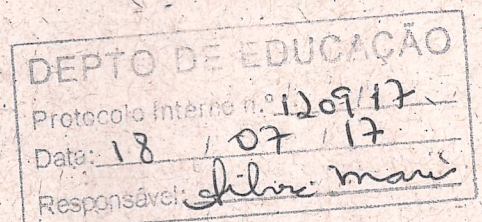 DEPTO DE EDUCAÇÃO
Protocolo Interno n.º 1209/17
Data: 18 / 07 / 17
Responsável: